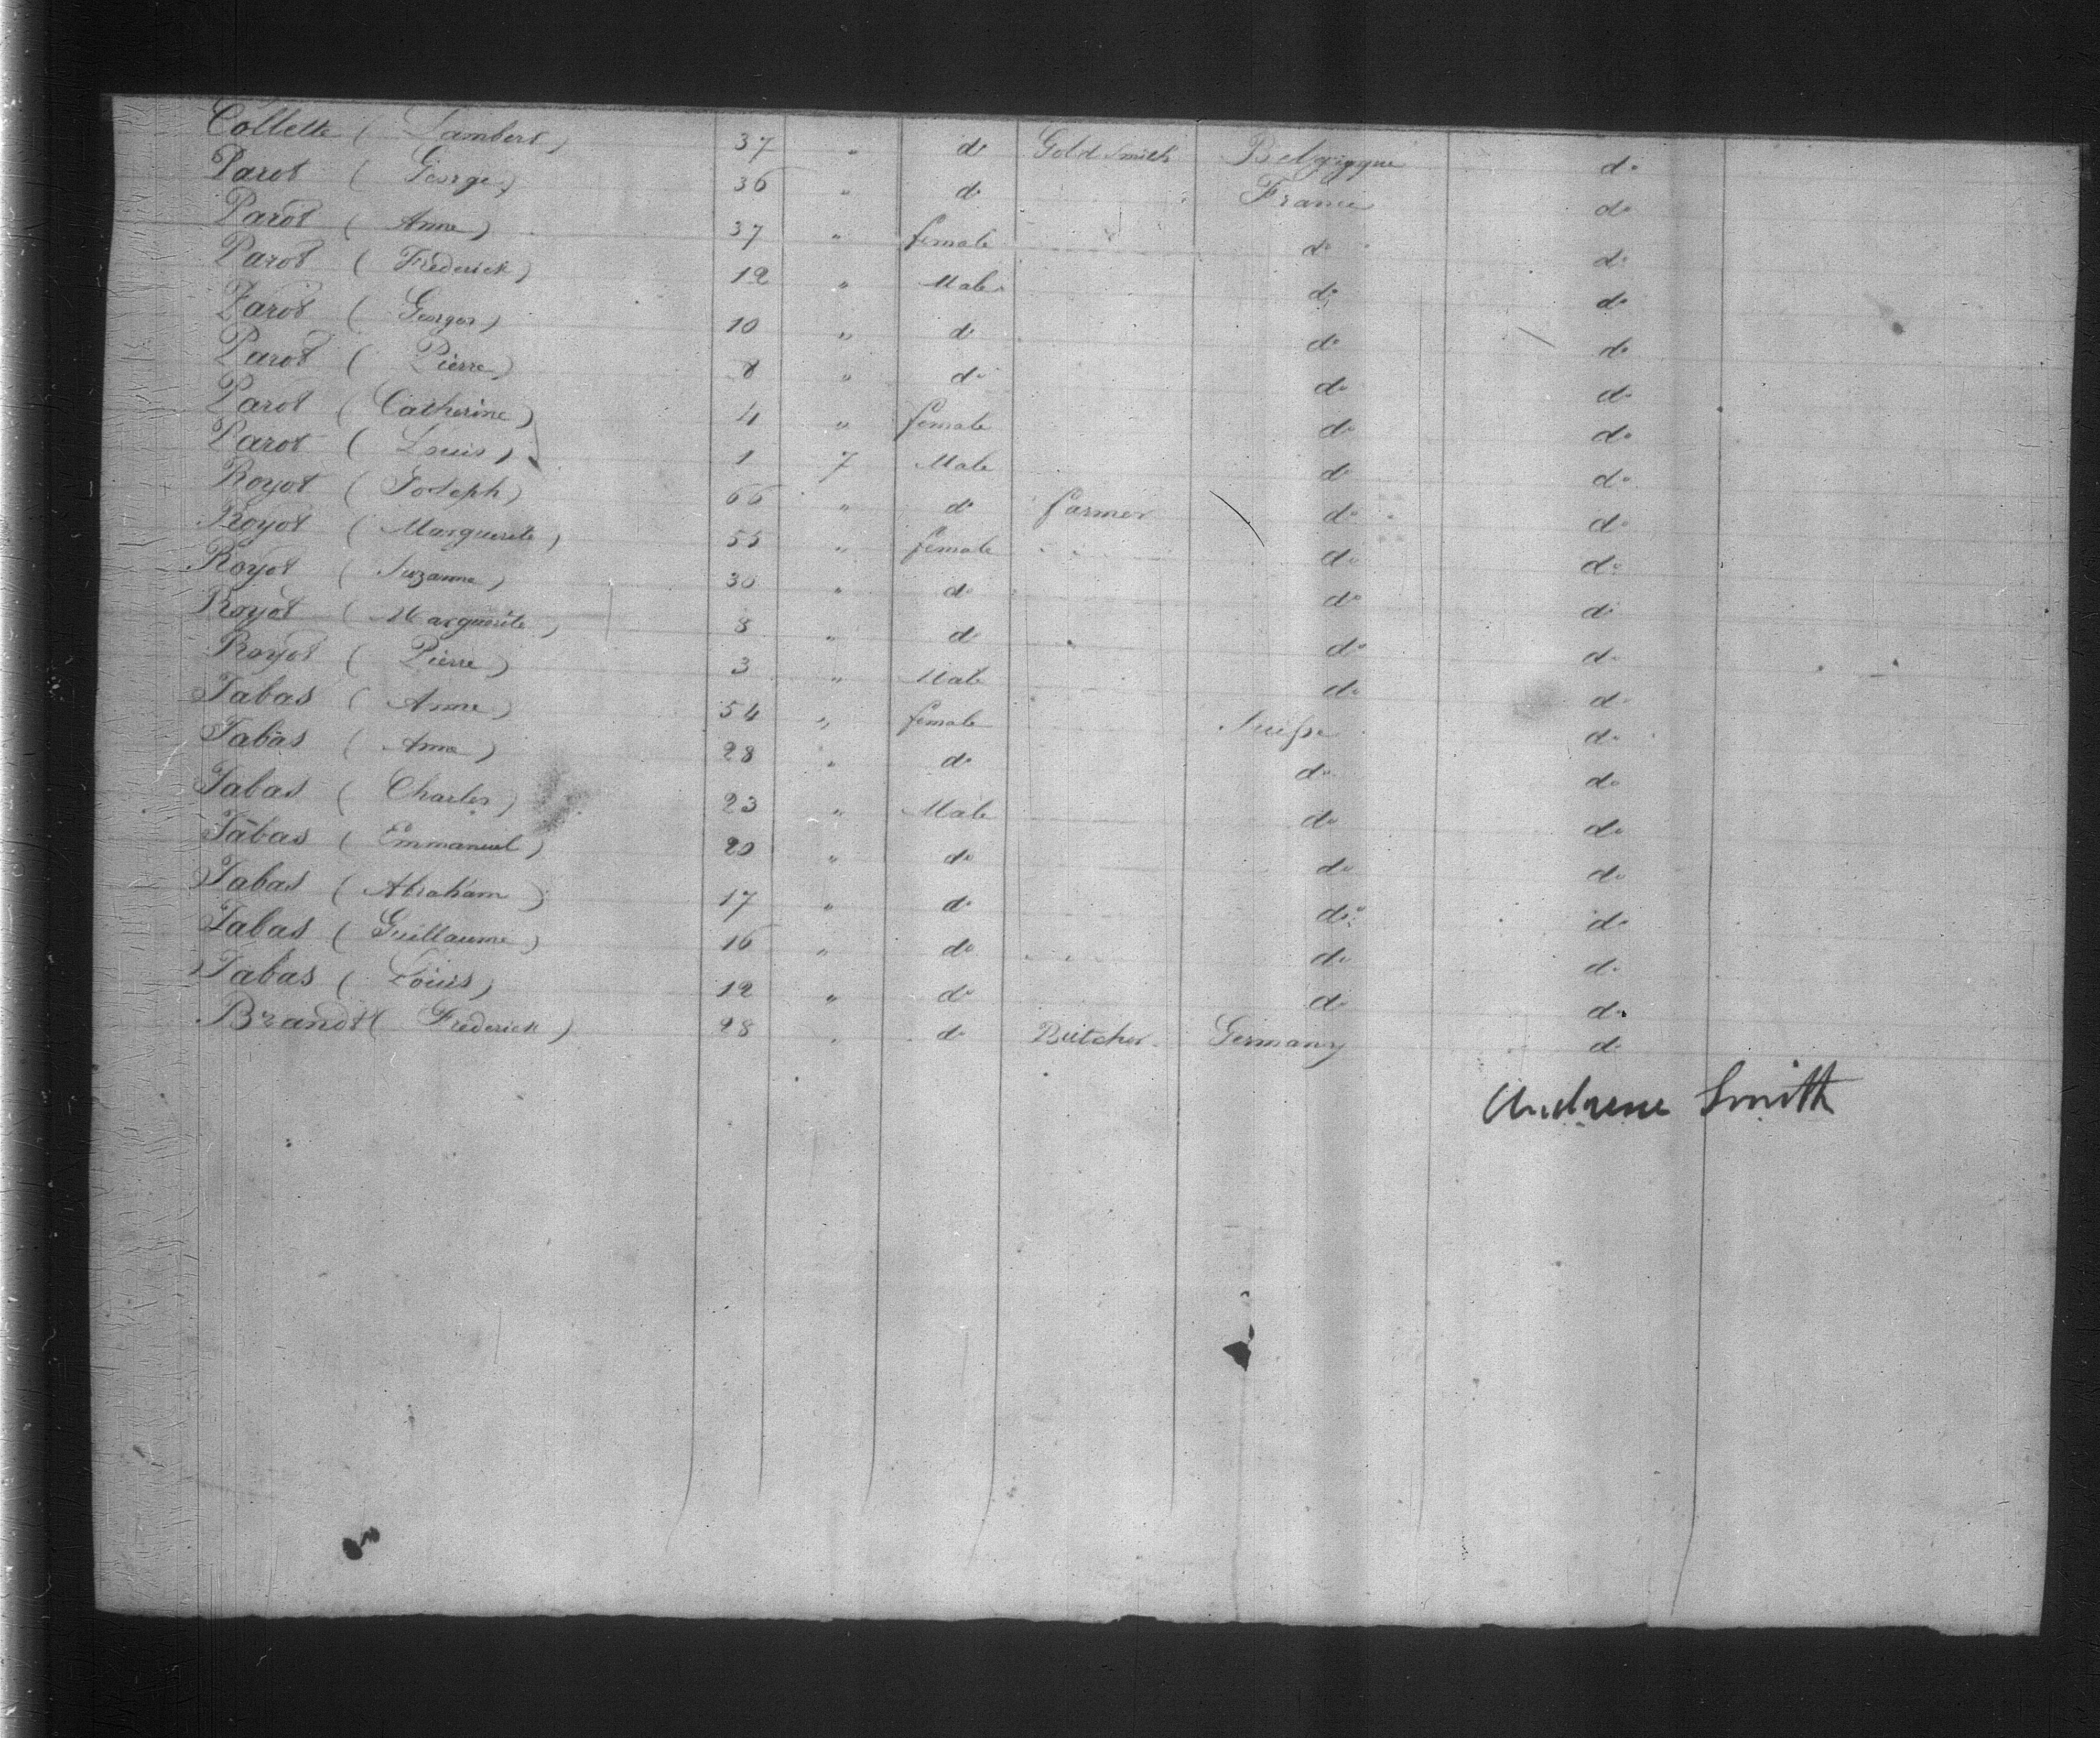 Collette ( Lambert ) 37 " do Gold Smith Belgigque do
Parot ( George ) 36 " do France do
Parot ( Anne ) 37 " female do do
Parot ( Frederick ) 12 " Male do do
Parot ( Georges ) 10 " do do do
Parot ( Pierre ) 8 " do do do
Parot ( Catherine ) 4 " female do do
Parot ( Louis ) 1 7 Male do do
Royot ( Joseph ) 66 " do farmer do do
Royot ( Marguerite ) 55 " female do do
Royot ( Suzanne ) 30 " do do do
Royot ( Marguerite ) 8 " do do do
Royot ( Pierre ) 3 " Male do do
Tabas ( Anne ) 54 " female Suisse do
Tabas ( Anne ) 28 " do do do
Tabas ( Charles ) 23 " Male do do
Tabas ( Emmanuel ) 20 " do do do
Tabas ( Abraham ) 17 " do do do
Tabas ( Guillaume ) 16 " do do do
Tabas ( Louis ) 12 " do do do
Brandt ( Frederick ) 28 " do Butcher Germany do
Smith